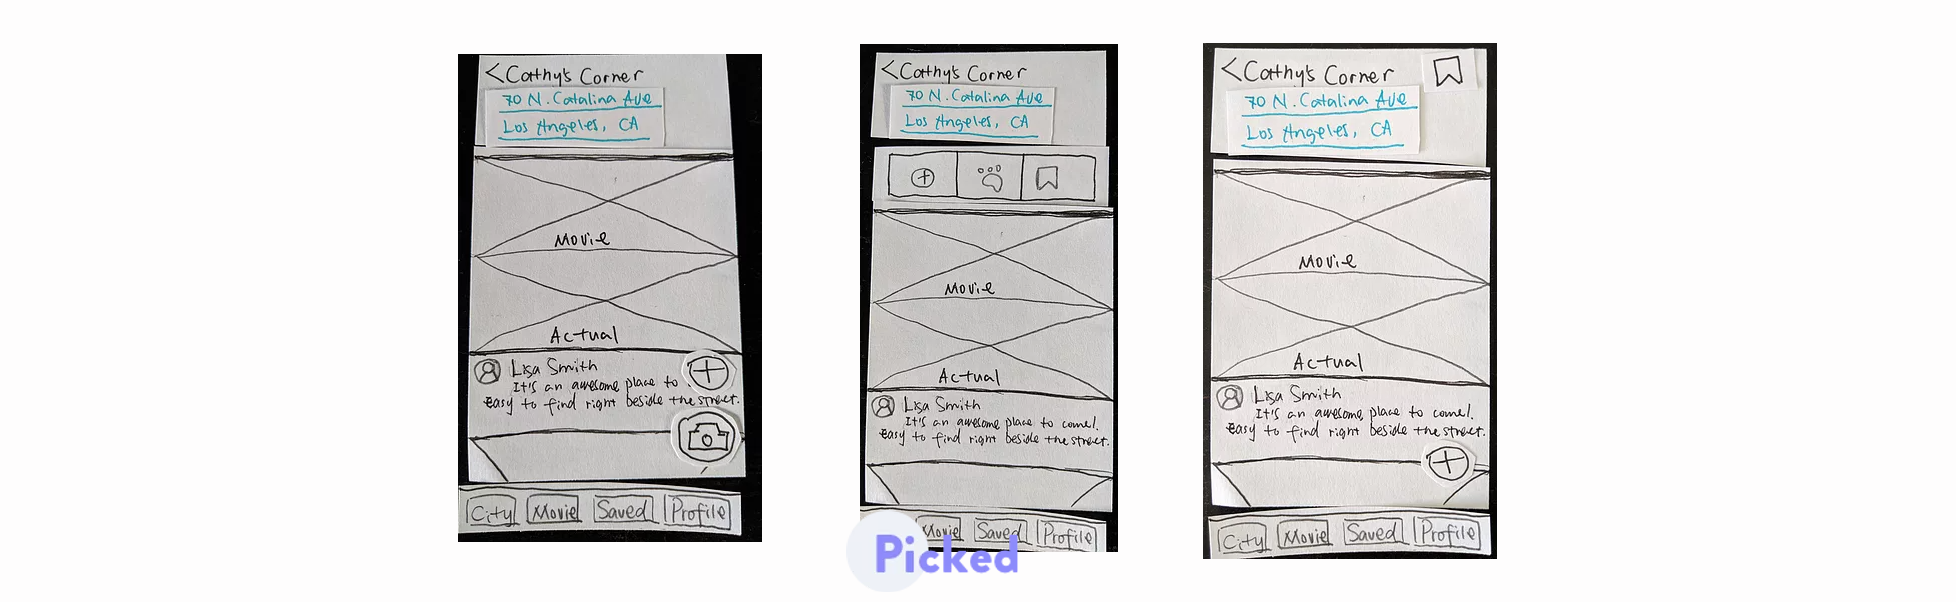 <Cathy's Corner
70 N. Catalina Ave
Los Angeles, CA
Movie
Actual
Lisa Smith
It's an awesome place to
easy to find right beside the street.
City Movie Saved Profile
<Cathy's Corner
70 N. Catalina Ave
Los Angeles, CA
Movie
Actual
Lisa Smith
It's an awesome place to come!.
easy to find right beside the street.
Movie Saved Profile
Picked
<Cathy's Corner
70 N. Catalina Ave
Los Angeles, CA
Movie
Actual
Lisa Smith
It's an awesome place to come!.
easy to find right beside the street.
City Movie Saved Profile